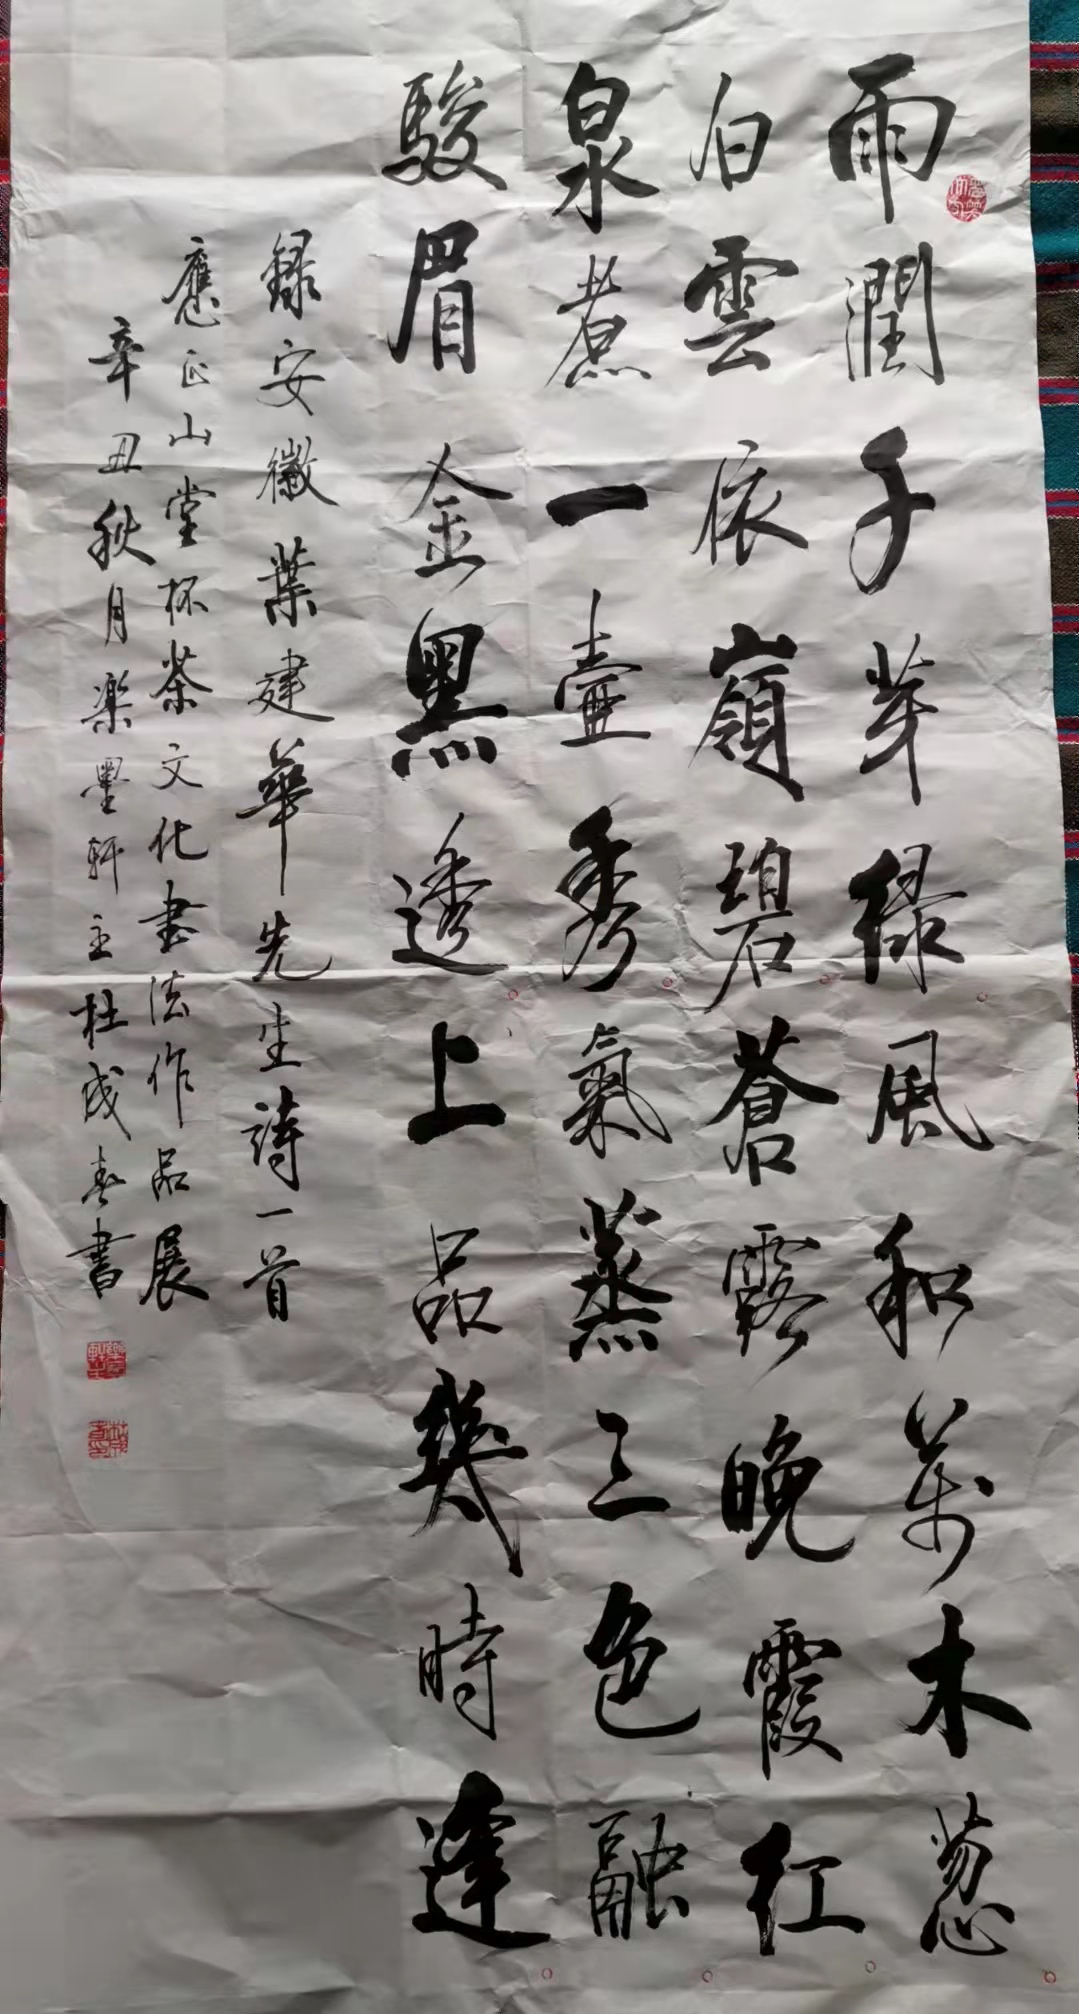 雨潤千芽緑風和萬木葱
白雲依嶺碧蒼露晚霞紅
泉煮一壺秀氣蒸三色融
駿眉金黑透上品幾時逢
録安徽葉建華先生詩一首
應正山堂杯茶文化書法作品展
辛丑秋月楽墨軒主杜成春書